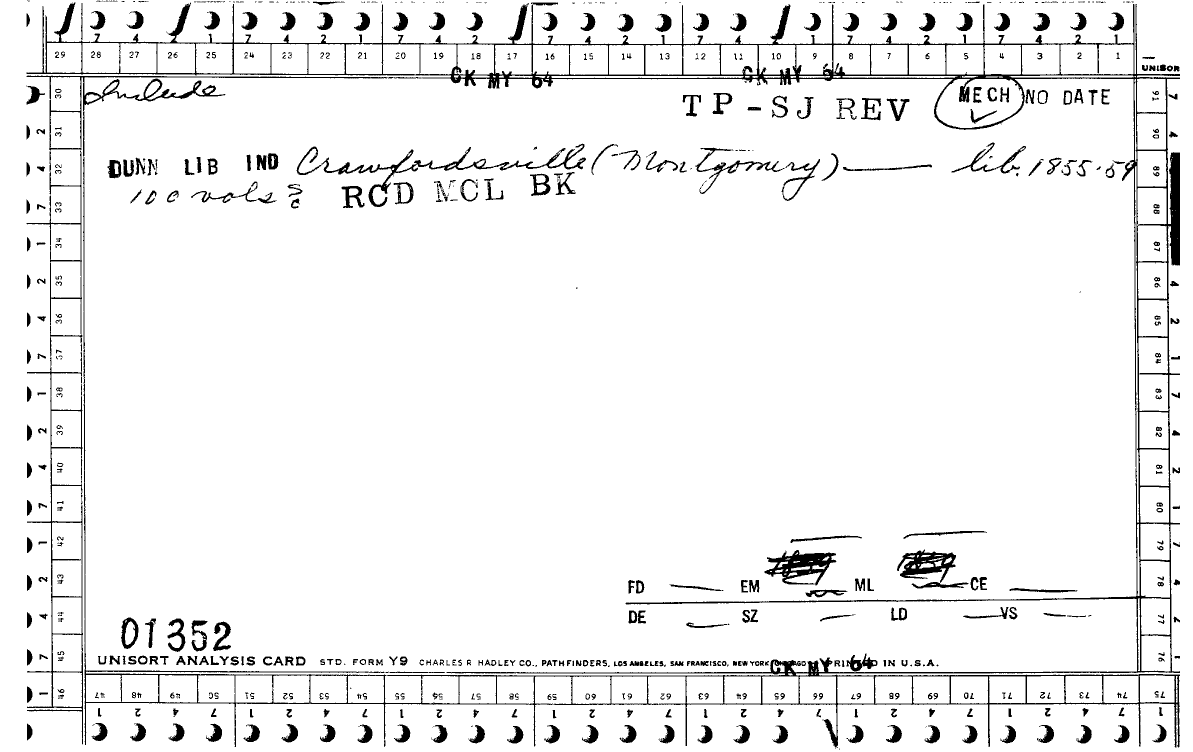 7 4 2 1 7 4 2 1 7 4 2 1 7 4 2 1 7 4 2 1 7 4 2 1
29 28 27 26 25 24 23 22 21 20 19 18 17 16 15 14 13 12 11 10 9 8 7 6 5 4 3 2 1
CK MY 64 CK MY 64 UNISOR
Include TP-SJ REV MECH NO DATE
DUNN LIB IND Crawfordsville (Montgomery) — lib. 1855-59
100 vols RCD MCL BK
30 31 32 33 34 35 36 37 38 39 40 41 42 43 44 45 46
91 90 89 88 87 86 85 84 83 82 81 80 79 78 77 76 75
FD — EM ML CE —
DE — SZ — LD — VS —
01352
UNISORT ANALYSIS CARD STD. FORM Y9 CHARLES R HADLEY CO., PATHFINDERS, LOS ANGELES, SAN FRANCISCO, NEW YORK, PRINTED IN U.S.A.
CK MY 64
47 48 49 50 51 52 53 54 55 56 57 58 59 60 61 62 63 64 65 66 67 68 69 70 71 72 73 74 75
1 2 4 7 1 2 4 7 1 2 4 7 1 2 4 7 1 2 4 7 1 2 4 7 1 2 4 7 1